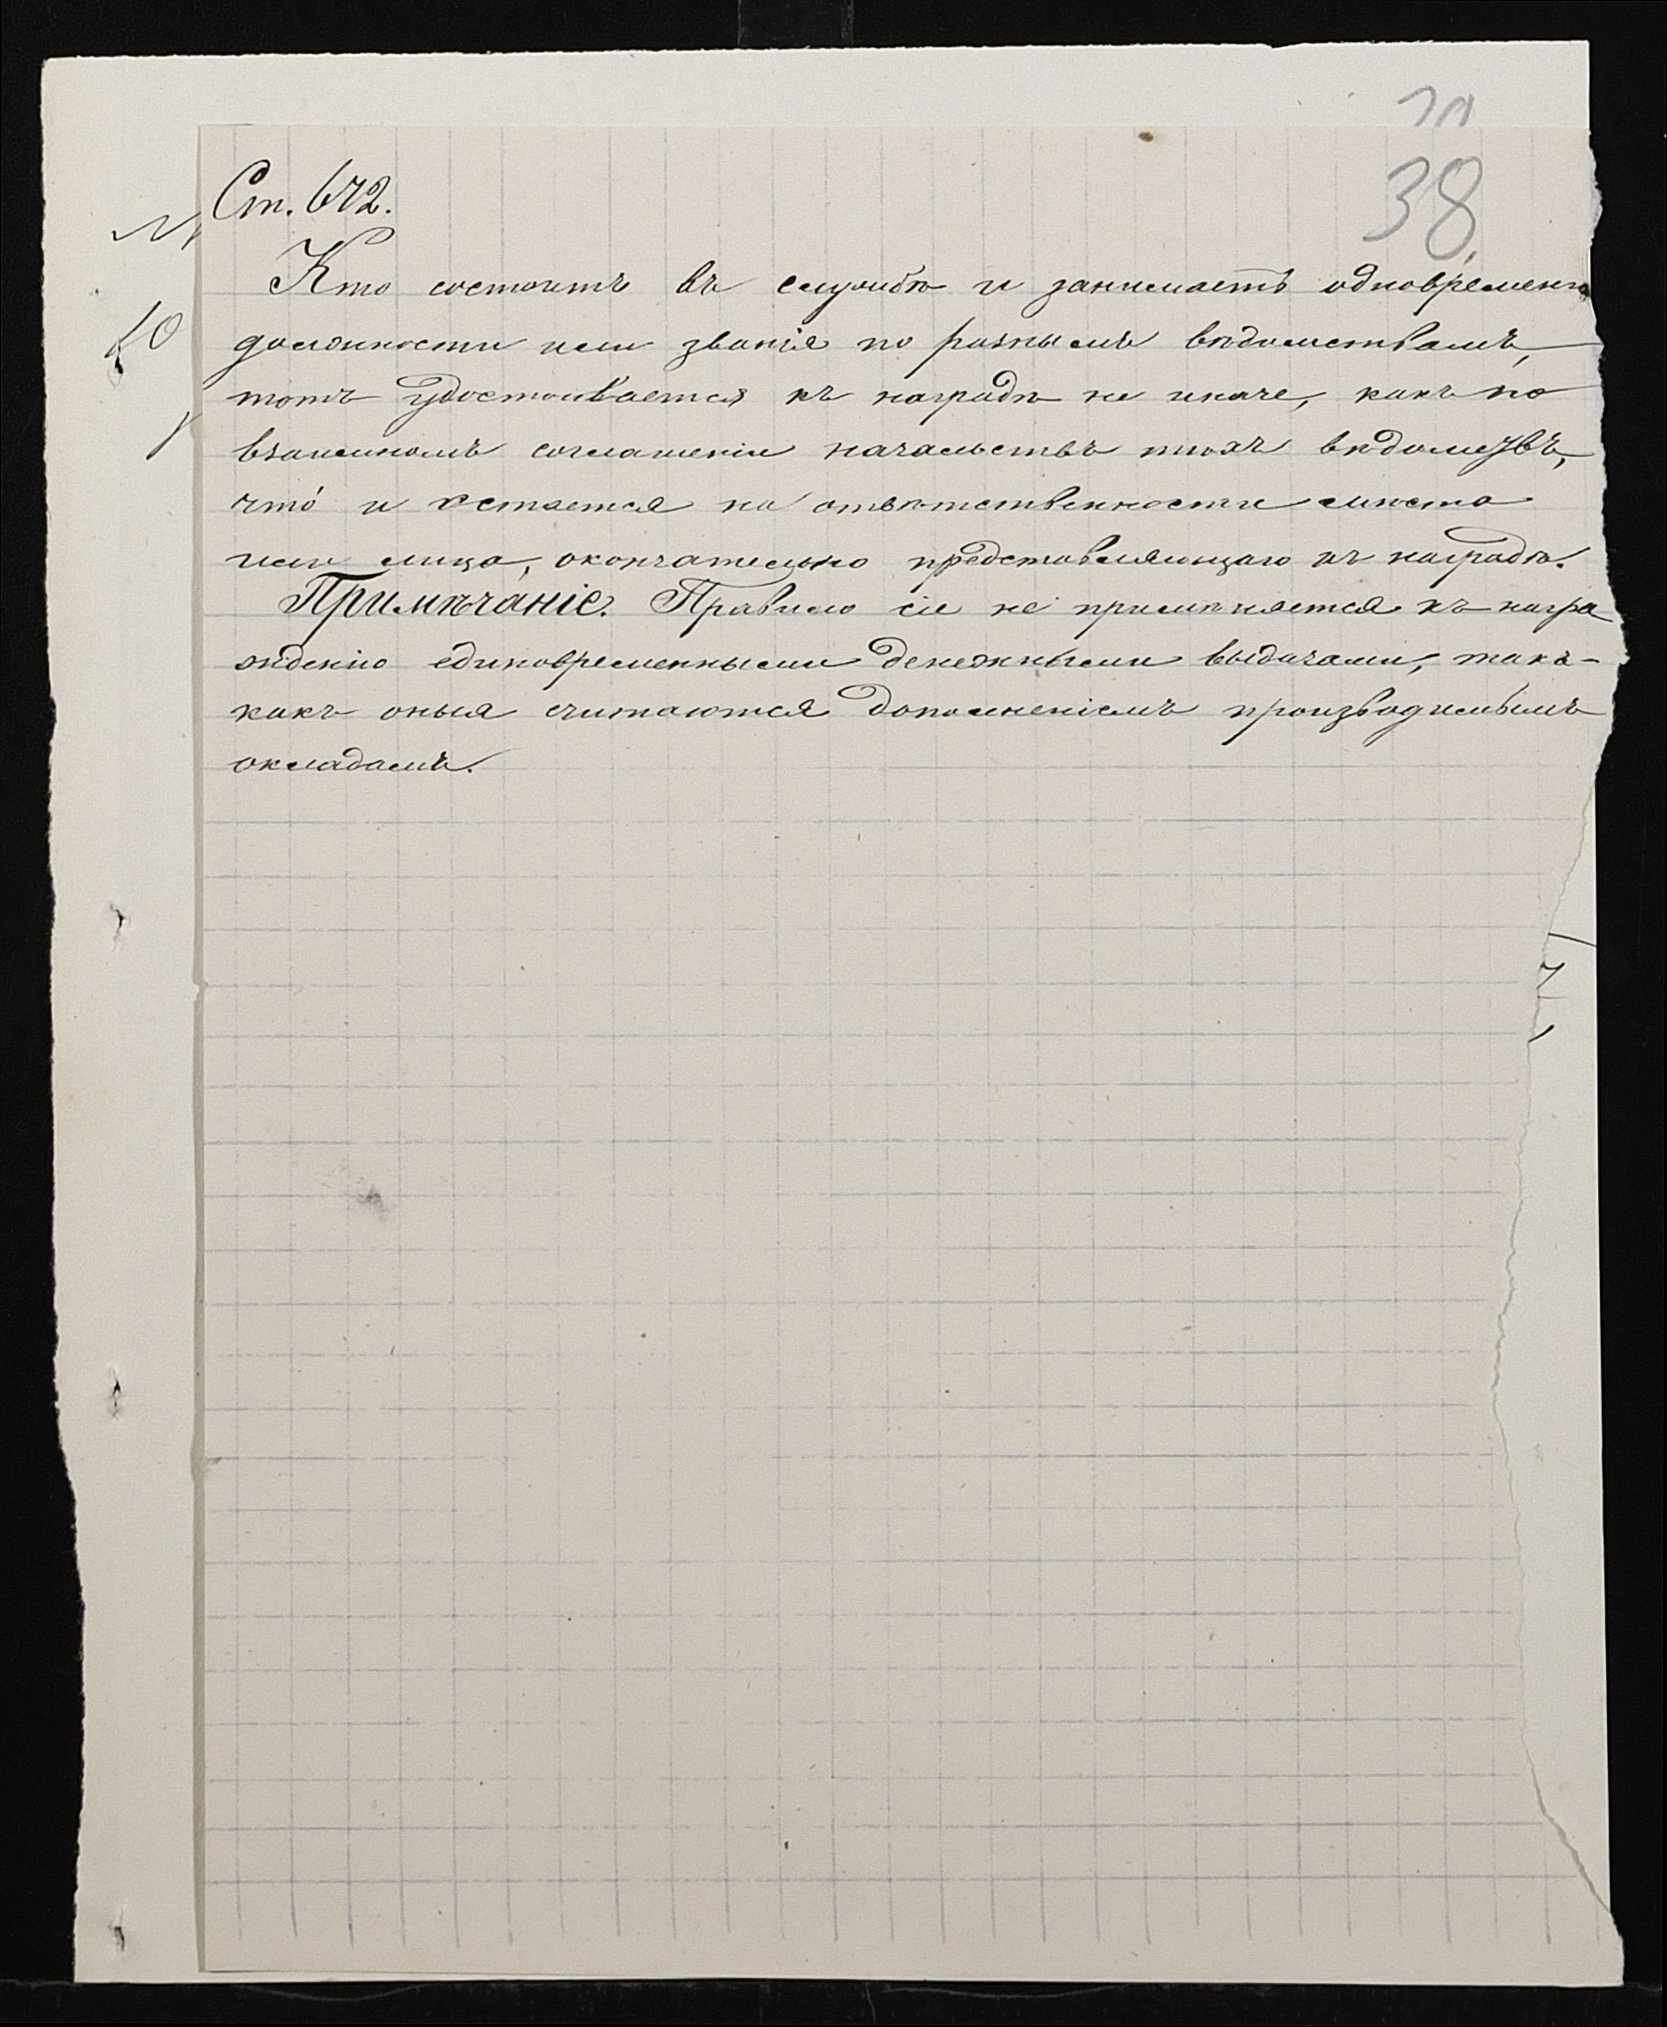 38
Ст. 672.
Кто состоитъ въ службѣ и занимаетъ одновременно
должности или званія по разнымъ вѣдомствамъ,
тотъ удостоивается къ наградѣ не иначе, какъ по
взаимномъ соглашеніи начальствъ тѣхъ вѣдомствъ,
что́ и остается на отвѣтственности мѣста
или лица, окончательно представляющаго къ наградѣ.
Примѣчаніе. Правило сіе не примѣняется къ награ
жденію единовременными денежными выдачами, такъ-
какъ оныя считаются дополненіемъ производимымъ
окладамъ.